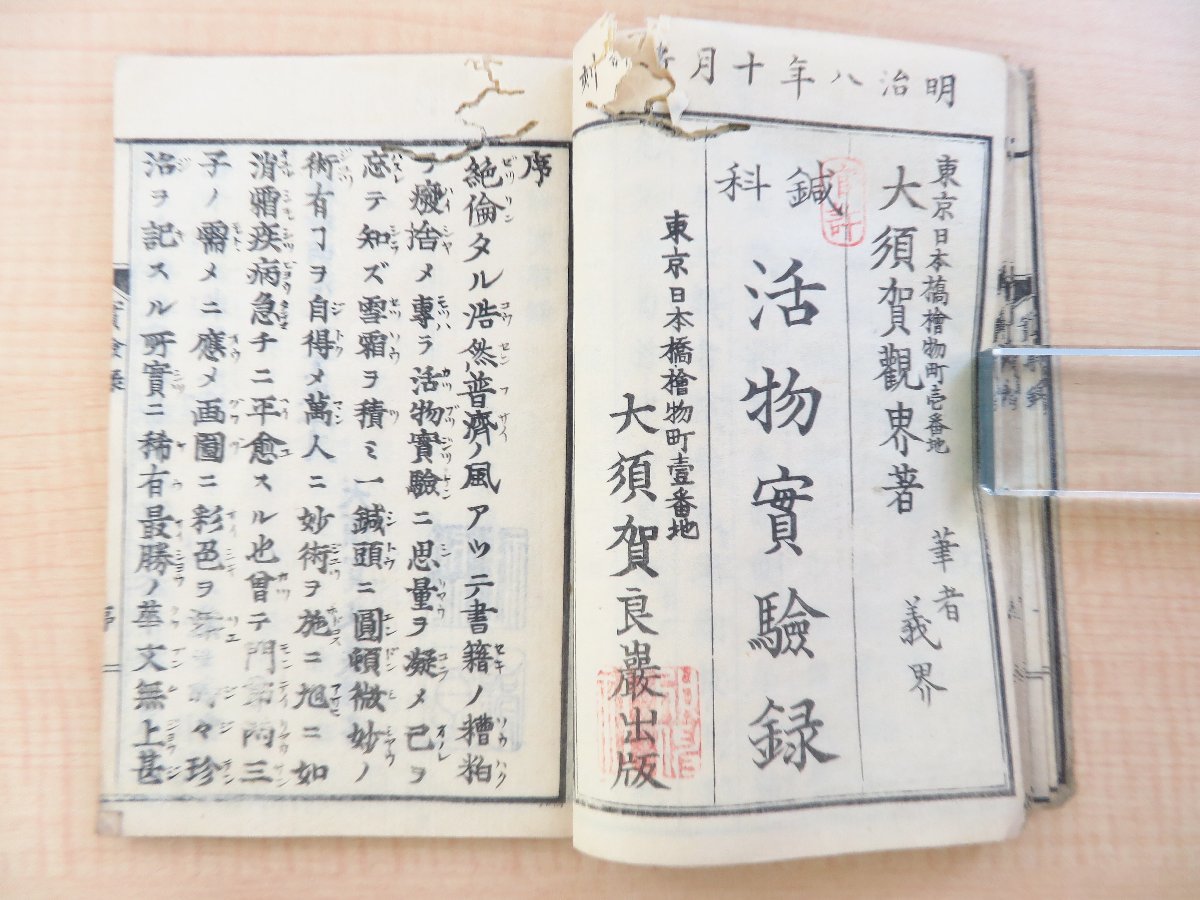 明治八年十月
東京日本橋檜物町壱番地
大須賀觀界著
筆者 義界
官許
鍼科
活物實驗録
東京日本橋檜物町壹番地
大須賀良巖出版
序
絶倫タル浩然普濟ノ風アツテ書籍ノ糟粕
ヲ癈捨メ專ラ活物實驗ニ思量ヲ凝メ己ヲ
忘テ知ズ雪霜ヲ積ミ一鍼頭ニ圓頓微妙ノ
術有ヿヲ自得メ萬人ニ妙術ヲ施ニ旭ニ如
消霜疾病急チニ平愈スル也曾テ門第両三
子ノ需メニ應メ画圖ニ彩色ヲ 々珍
治ヲ記スル所實ニ稀有最勝ノ華文無上甚